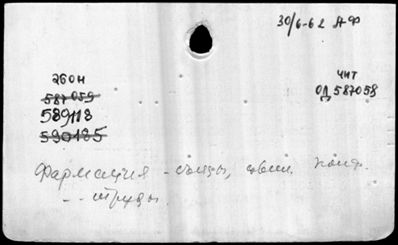 30/6-62 АФ
абон
587059
589118
590185
чит
ОД 587058
Фармация - съезды, совещ. конф.
-"- труды.